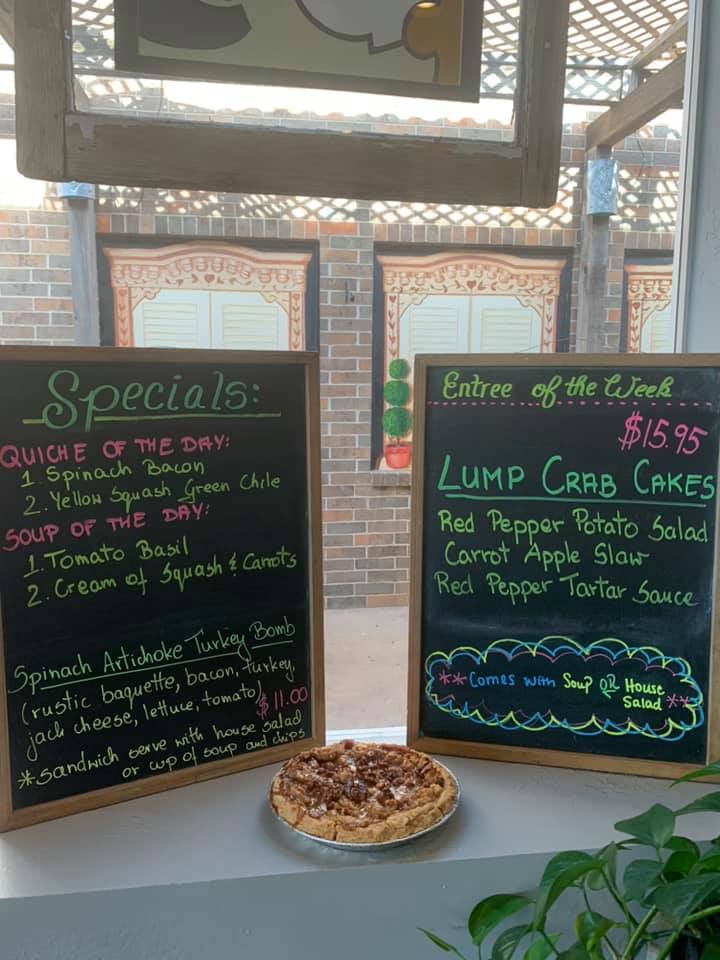 Specials:
QUICHE OF THE DAY:
1. Spinach Bacon
2. Yellow Squash Green Chile
SOUP OF THE DAY:
1. Tomato Basil
2. Cream of Squash & Carrots
Spinach Artichoke Turkey Bomb
(rustic baquette, bacon, turkey,
jack cheese, lettuce, tomato)
$11.00
*sandwich serve with house salad
or cup of soup and chips
Entree of the Week
$15.95
LUMP CRAB CAKES
Red Pepper Potato Salad
Carrot Apple Slaw
Red Pepper Tartar Sauce
**Comes with Soup OR House
Salad **